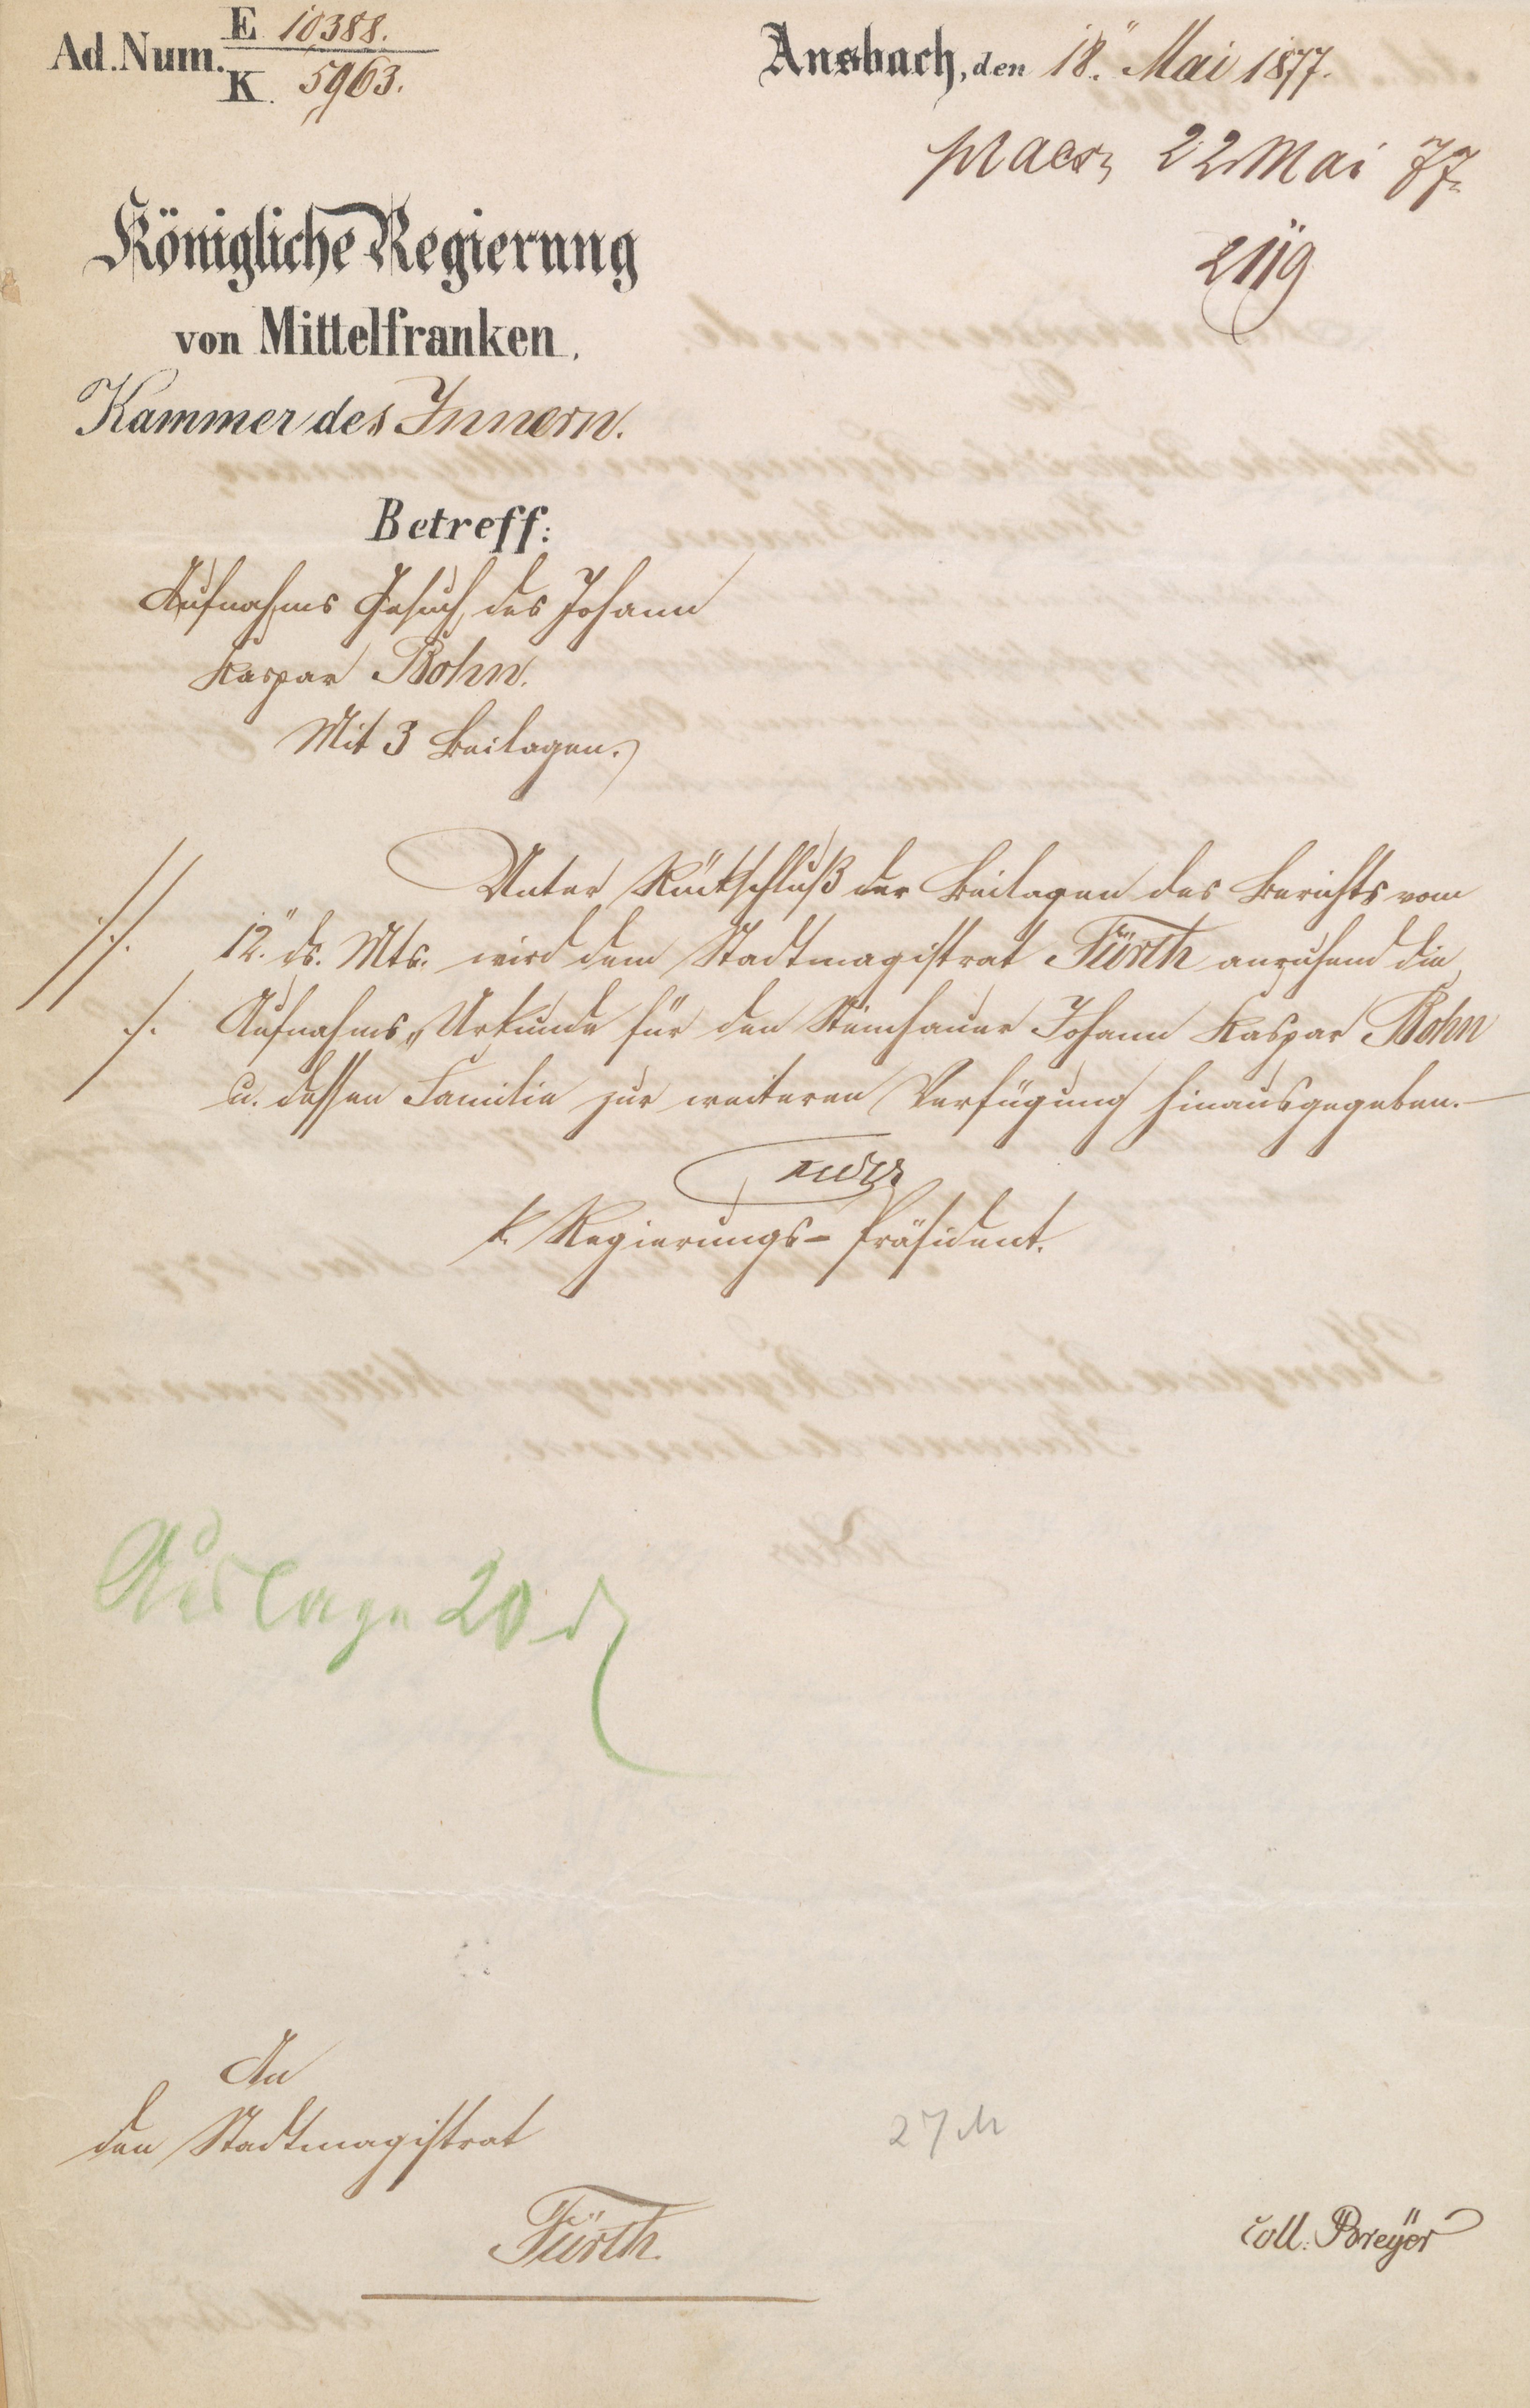 Ad. Num. E 10388.
K. 5963.
Ansbach, den 18. Mai 1877.
praes. 22 Mai 77.
Königliche Regierung
von Mittelfranken,
Kammer des Innern.
Betreff:
Aufnahms Gesuch des Johann
Kaspar Bohn.
Mit 3 Beilagen.
Unter Rückschluß der Beilagen des Berichts vom
12. ds. Mts. wird dem Stadtmagistrat Fürth anruhend die
Aufnahms-Urkunde für den Steinhauer Johann Kaspar Bohn
u. dessen Familie zur weiteren Verfügung hinausgegeben.
k. Regierungs-Präsident.
Auslage 20 d
An
den Stadtmagistrat
27 M
Fürth.
coll. Breyer